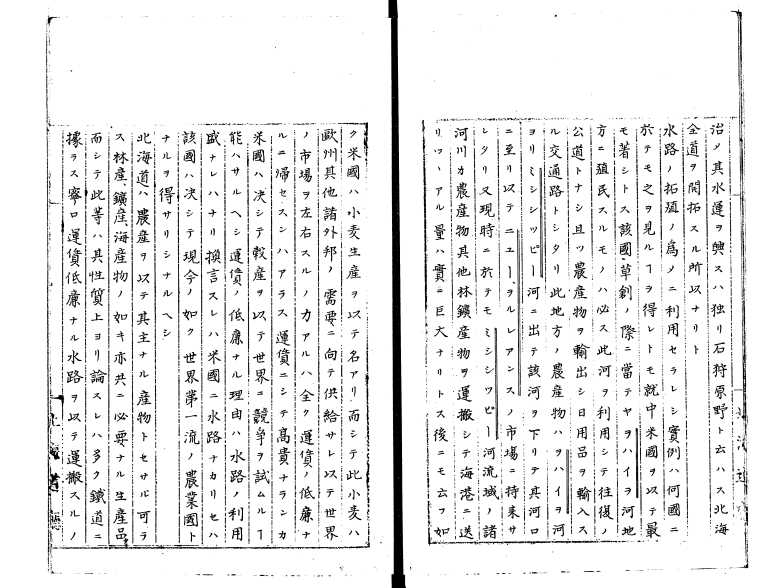 治メ其水運ヲ興スハ独リ石狩原野ト云ハス北海
全道ヲ開拓スル所以ナリト
水路ノ拓殖ノ為メニ利用セラレシ實例ハ何國ニ
於テモ之ヲ見ルヿヲ得レトモ就中米國ヲ以テ最
モ著シトス該國草創ノ際ニ當テヤヲハイヲ河地
方ニ殖民スルモノハ必ス此河ヲ利用シテ往復ノ
公道トナシ且ツ農産物ヲ輸出シ日用品ヲ輸入ス
ル交通路トシタリ此地方ノ農産物ハヲハイヲ河
ヨリミシシッピー河ニ出テ該河ヲ下リテ其河口
ニ至リ以テニューヲルレアンスノ市場ニ持来サ
レタリ又現時ニ於テモミシシッピー河流域ノ諸
河川カ農産物其他林鑛産物ヲ運搬シテ海港ニ送
リツヽアル量ハ實ニ巨大ナリトス後ニモ云フ如
ク米國ハ小麦生産ヲ以テ名アリ而シテ此小麦ハ
歐州其他諸外邦ノ需要ニ向テ供給サレ以テ世界
ノ市場ヲ左右スルノ力アルハ全ク運賃ノ低廉ナ
ルニ帰セスンハアラス運賃ニシテ高貴ナランカ
米國ハ決シテ穀産ヲ以テ世界ニ競争ヲ試ムルヿ
能ハサルヘシ運賃ノ低廉ナル理由ハ水路ノ利用
盛ナレハナリ換言スレハ米國ニ水路ナカリセハ
該國ハ決シテ現今ノ如ク世界第一流ノ農業國ト
ナルヲ得サリシナルヘシ
北海道ハ農産ヲ以テ其主ナル産物トセサル可ラ
ス林産、鑛産、海産物ノ如キ亦共ニ必要ナル生産品
而シテ此等ハ其性質上ヨリ論スレハ多ク鐵道ニ
據ラス寧ロ運賃低廉ナル水路ヲ以テ運搬スルノ